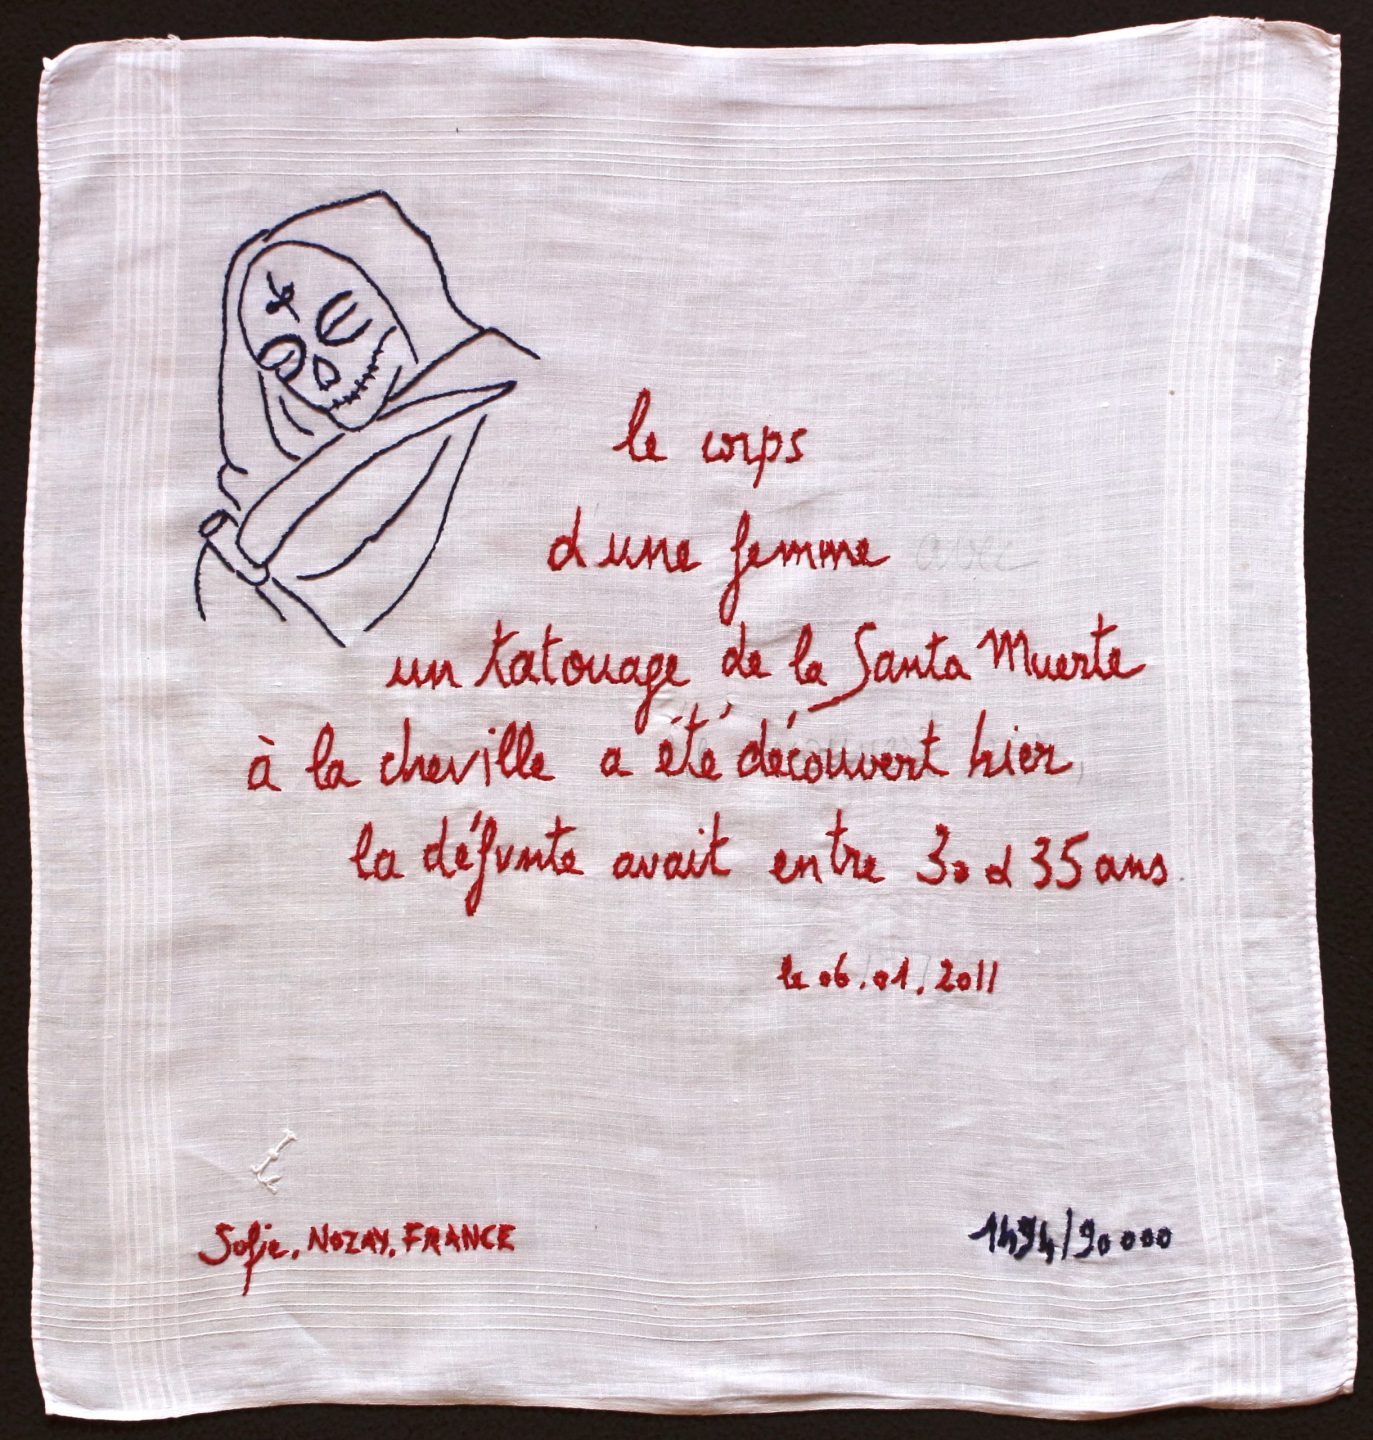 le corps
d'une femme avec
un tatouage de la Santa Muerte
à la cheville a été découvert hier,
la défunte avait entre 30 et 35 ans.
le 06.01.2011
Sofie, NOZAY, FRANCE
1494/90000